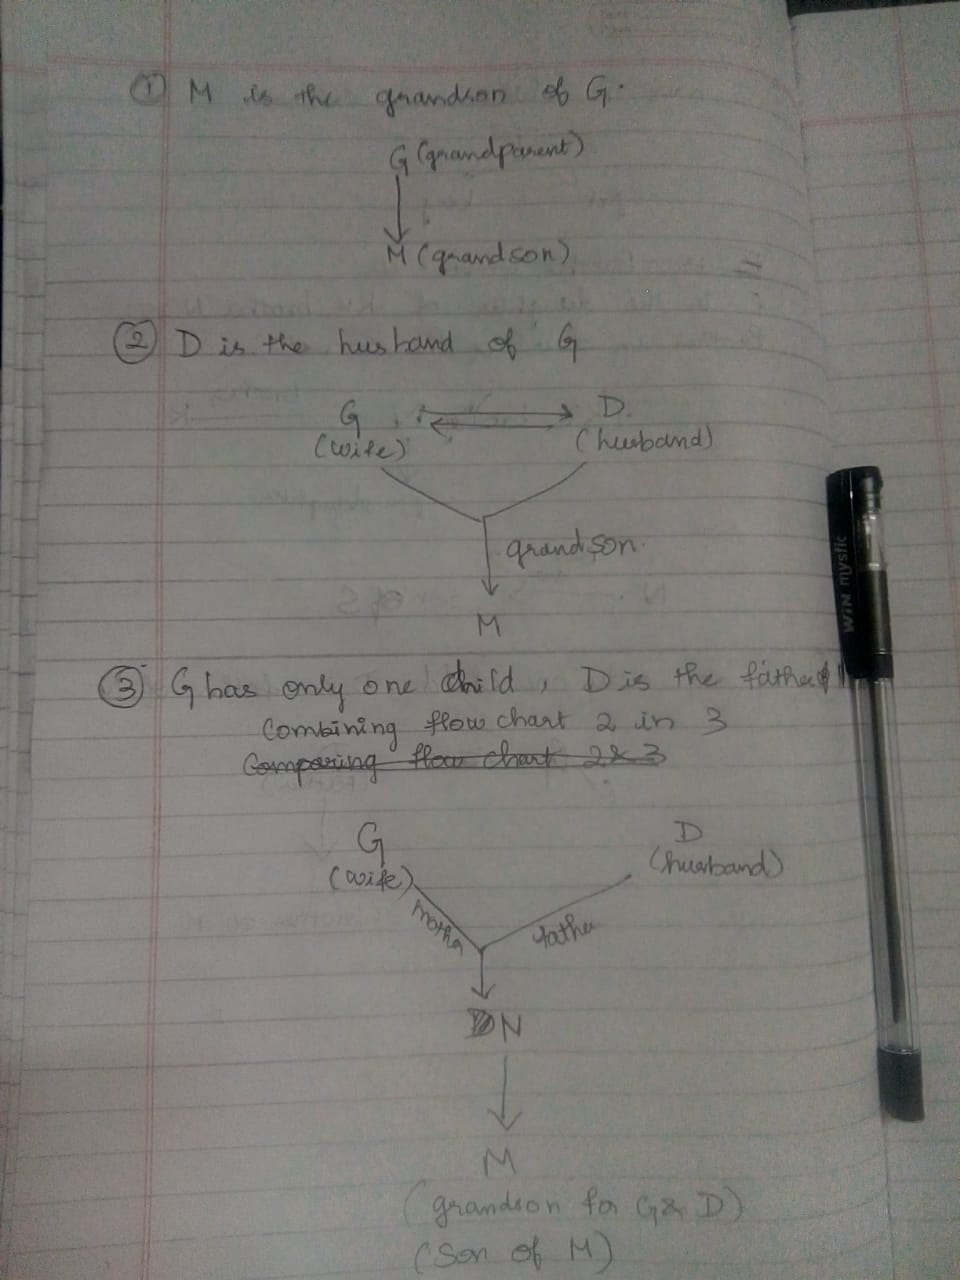 ① M is the grandson of G.
G (grandparent)
M (grandson)
② D is the husband of G
G D.
(wife) (husband)
grandson.
M
③ G has only one child, D is the father
Combining flow chart 2 in 3
Comparing flow chart 2 & 3
G D
(wife) (husband)
mother father
N
M
(grandson for G & D)
(Son of M)
WIN mystic